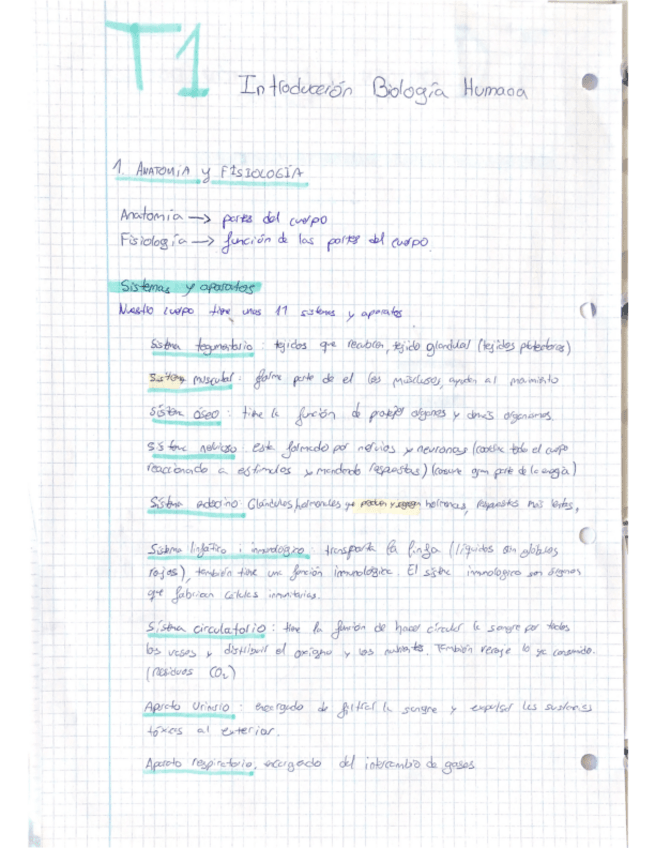 T1
Introducción Biología Humana
1. ANATOMÍA y FISIOLOGÍA
Anatomía → partes del cuerpo
Fisiología → función de las partes del cuerpo.
Sistemas y aparatos
Nuestro cuerpo tiene unos 11 sistemas y aparatos
Sistema tegumentario: tejidos que recubren, tejido glandular (tejidos protectores)
Sistema muscular: forma parte de el los músculos, ayudan al movimiento
Sistema óseo: tiene la función de proteger órganos y demás
Sistema nervioso: esta formado por nervios y neuronas (controla todo el cuerpo
reaccionando a estímulos y mandando respuestas) (consume gran parte de la energía)
Sistema endocrino: Glándulas hormonales que producen y segregan hormonas, respuestas más lentas,
Sistema linfático i inmunológico: transporta la linfa (líquidos sin glóbulos
rojos), también tiene una función inmunológica. El sistema inmunológico son órganos
que fabrican células inmunitarias.
Sistema circulatorio: tiene la función de hacer circular la sangre por todos
los vasos y distribuir el oxígeno y los nutrients. También recoje lo ya consumido.
(residuos CO₂)
Aparato Urinario: encargado de filtrar la sangre y expulsar les sustancies
tóxicas al exterior.
Aparato respiratorio, encargado del intercambio de gases